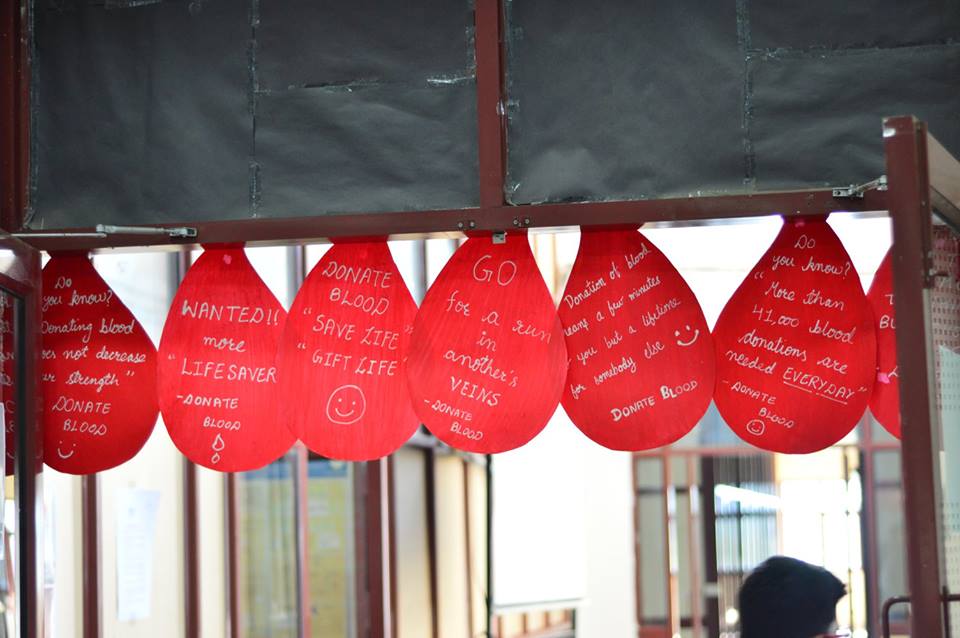 Do
you know?
Donating blood
not decrease
strength"
DONATE
BLOOD
WANTED!!
more
"LIFESAVER
-DONATE
BLOOD
DONATE
BLOOD
"SAVE LIFE"
"GIFT LIFE"
GO
for a run
in
another's
VEINS
-DONATE
BLOOD
Donation of blood
means a few minutes
you but a lifetime
for somebody else
DONATE BLOOD
Do
you know?
"More than
41,000 blood
donations are
needed EVERYDAY"
-DONATE
BLOOD